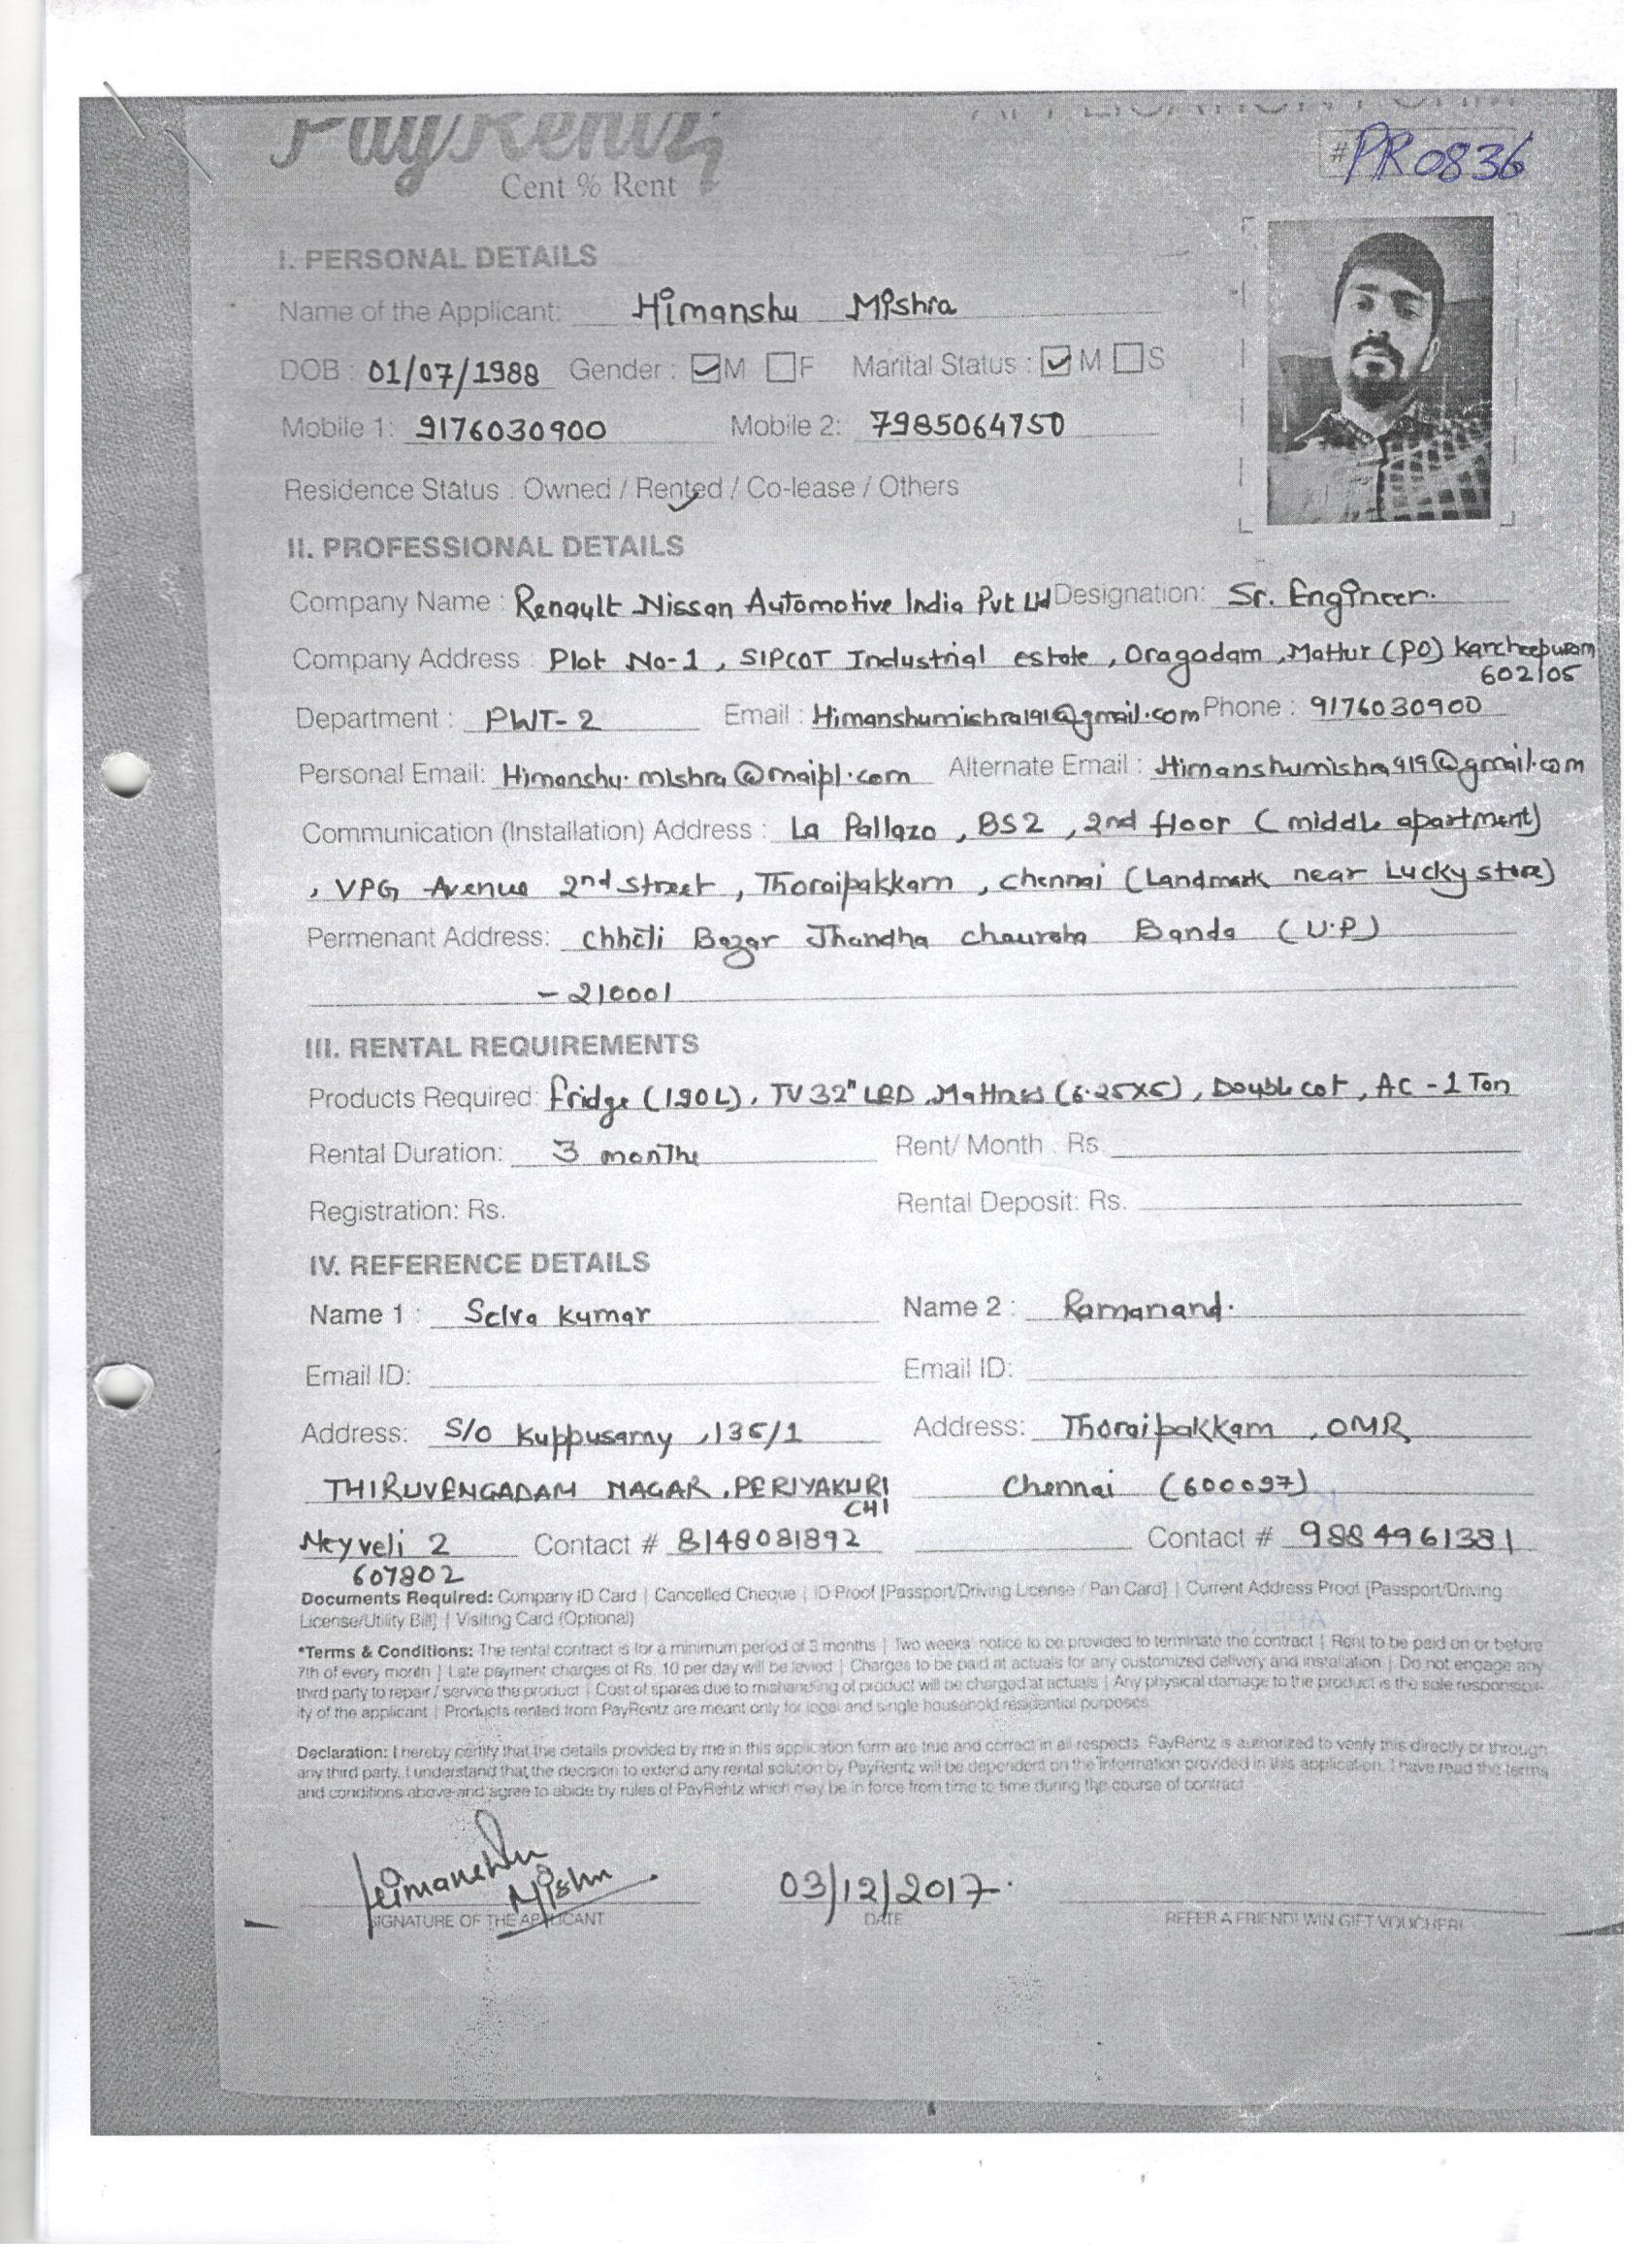 PayRentz
APPLICATION FORM
Cent % Rent
#PR0836
I. PERSONAL DETAILS
Name of the Applicant: Himanshu Mishra
DOB : 01/07/1988 Gender : M F Marital Status : M S
Mobile 1: 9176030900 Mobile 2: 7985064750
Residence Status : Owned / Rented / Co-lease / Others
II. PROFESSIONAL DETAILS
Company Name : Renault Nissan Automotive India Pvt Ltd Designation: Sr. Engineer.
Company Address : Plot No-1, SIPCOT Industrial estate, Oragadam, Mattur (PO) Kancheepuram
602105
Department : PWT-2 Email : Himanshumishra191@gmail.com Phone : 9176030900
Personal Email: Himanshu.mishra@rnaipl.com Alternate Email : Himanshumishra919@gmail.com
Communication (Installation) Address : La Pallazo, BS2, 2nd floor (middle apartment)
, VPG Avenue 2nd street, Thoraipakkam, chennai (Landmark near Lucky store)
Permenant Address: Chhoti Bazar Jhandha chauraha Banda (U.P)
- 210001
III. RENTAL REQUIREMENTS
Products Required: fridge (190L), TV 32" LED, Mattress (6.25X5), Double cot, AC - 1 Ton
Rental Duration: 3 months Rent/ Month : Rs.
Registration: Rs. Rental Deposit: Rs.
IV. REFERENCE DETAILS
Name 1 : Selva Kumar Name 2 : Ramanand.
Email ID: Email ID:
Address: S/o Kuppusamy, 135/1 Address: Thoraipakkam, OMR
THIRUVENGADAM NAGAR, PERIYAKURI Chennai (600097)
CHI
Neyveli 2 Contact # 8148081892 Contact # 9884961381
607802
Documents Required: Company ID Card | Cancelled Cheque | ID Proof [Passport/Driving License / Pan Card] | Current Address Proof [Passport/Driving
License/Utility Bill] | Visiting Card (Optional)
*Terms & Conditions: The rental contract is for a minimum period of 3 months | Two weeks' notice to be provided to terminate the contract | Rent to be paid on or before
7th of every month | Late payment charges of Rs. 10 per day will be levied | Charges to be paid at actuals for any customized delivery and installation | Do not engage any
third party to repair / service the product | Cost of spares due to mishandling of product will be charged at actuals | Any physical damage to the product is the sole responsibil-
ity of the applicant | Products rented from PayRentz are meant only for legal and single household residential purposes
Declaration: I hereby certify that the details provided by me in this application form are true and correct in all respects. PayRentz is authorized to verify this directly or through
any third party. I understand that the decision to extend any rental solution by PayRentz will be dependent on the information provided in this application. I have read the terms
and conditions above and agree to abide by rules of PayRentz which may be in force from time to time during the course of contract
Himanshu
Mishra
03/12/2017.
SIGNATURE OF THE APPLICANT DATE REFER A FRIEND! WIN GIFT VOUCHER!